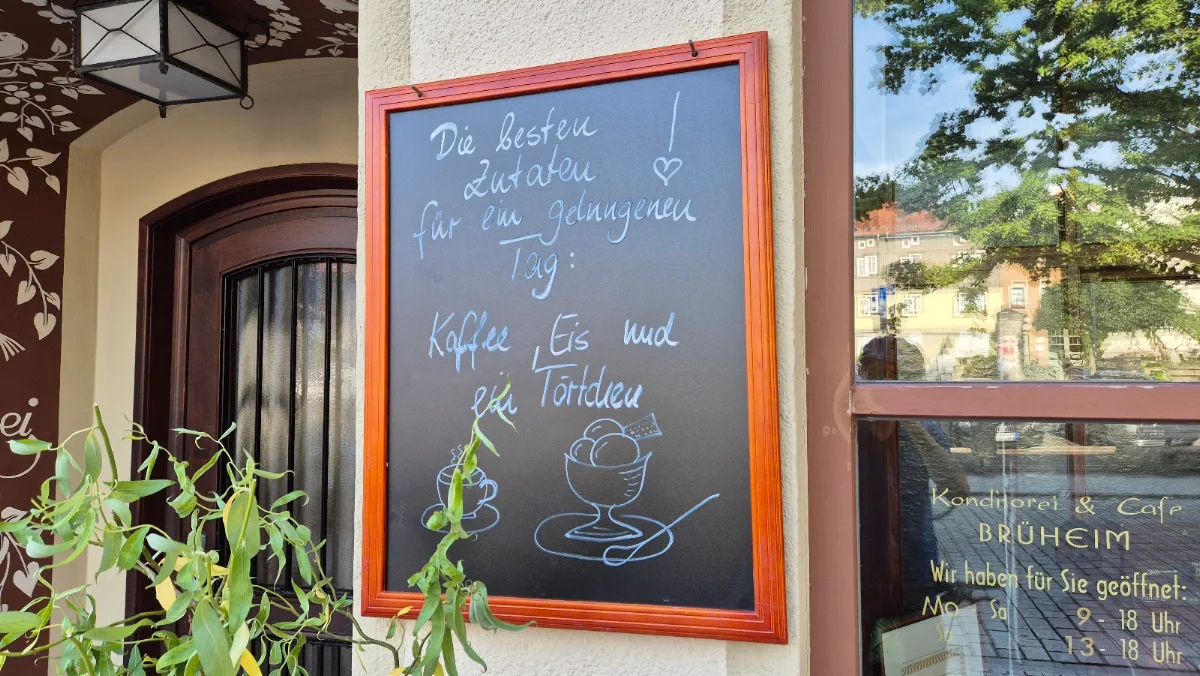 Die besten !
Zutaten
für ein gelungenen
Tag:
Kaffee, Eis und
ein Törtchen
ei
Konditorei & Cafe
BRÜHEIM
Wir haben für Sie geöffnet:
Mo Sa 9 - 18 Uhr
13 - 18 Uhr